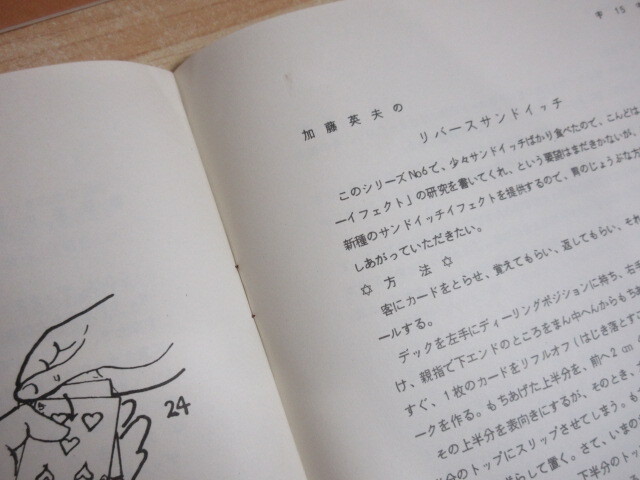 24
15
加藤英夫の
リバースサンドイッチ
このシリーズNo6で、少々サンドイッチばかり食べたので、こんどは
ーイフェクト」の研究を書いてくれ、という要望はまだきかないが、
新種のサンドイッチイフェクトを提供するので、胃のじょうぶな方
しあがっていただきたい。
☆ 方 法 ☆
客にカードをとらせ、覚えてもらい、返してもらい、それ
ールする。
デックを左手にディーリングポジションに持ち、右手
け、親指で下エンドのところをまん中へんからもちあ
すぐ、1枚のカードをリフルオフ（はじき落とすこ
ークを作る。もちあげた上半分を、前へ2cm
その上半分を表向きにするが、そのとき、
半分のトップにスリップさせてしまう。も
らして置く。さて、いまの
下半分のトッ